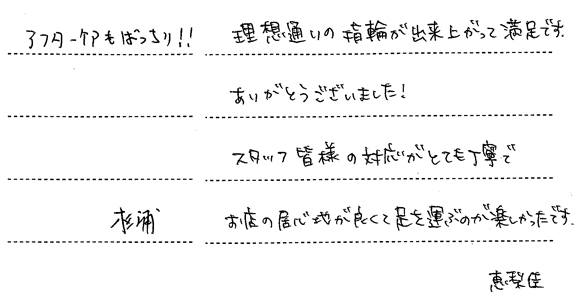 アフターケアもばっちり!! 理想通りの指輪が出来上がって満足です.
ありがとうございました!
スタッフ皆様の対応がとても丁寧で
杉浦 お店の居心地が良くて足を運ぶのが楽しかったです.
恵梨佳